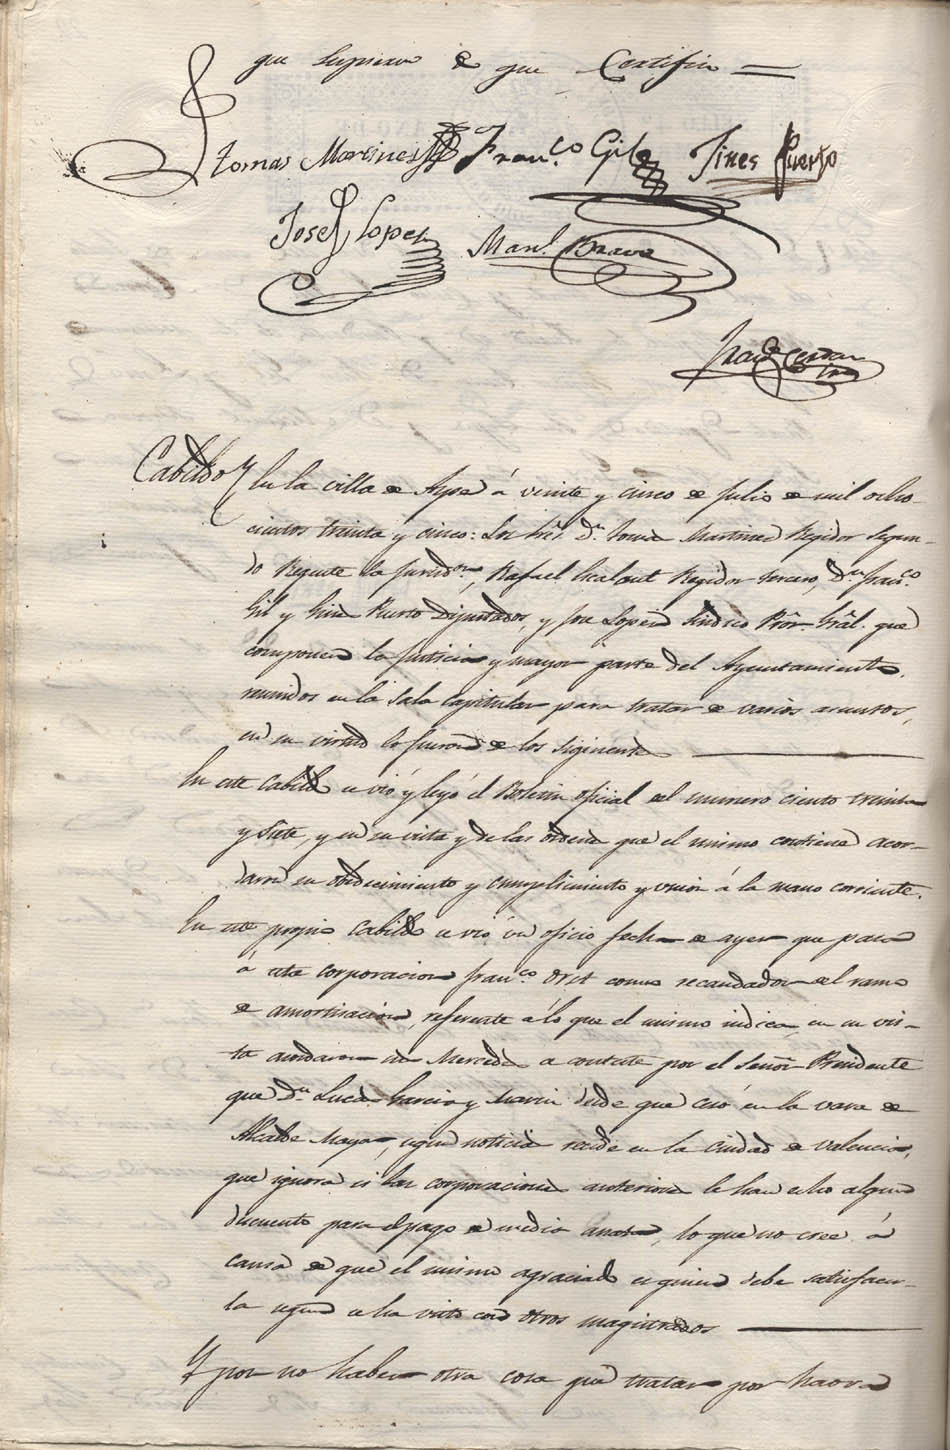 que supieron de que Certifico =
Tomas Martines Fran.co Gil Jines Puerto
Josef Lopez Man.l Bravo
Fran.co Cerdan
Cabildo } En la villa de Aspe á veinte y cinco de Julio de mil ocho-
cientos treinta y cinco: Los Sres. D.n Tomas Martinez Regidor segun-
do Regente la Jurisd.on, Rafael Regidor tercero, D.n Fran.co
Gil y Gines Puerto Diputados, y José Lopez Sindico Pror. Gral. que
componen la Justicia y mayor parte del Ayuntamiento,
reunidos en la Sala Capitular para tratar de varios asuntos,
en su virtud lo fueron de los siguientes
En este Cabildo se vió y leyó el Boletin oficial del numero ciento treinta
y siete, y en su vista y de las ordenes que el mismo contiene acor-
daron su obedecimiento y cumplimiento y unir á la mano corriente.
En este propio Cabildo se vió un oficio fecha de ayer que pasa
á esta corporacion Fran.co como recaudador del ramo
de amortisacion, referente á lo que el mismo indica, en su vis-
ta acordaron sus Mercedes se conteste por el Señor Presidente
que D.n Lucas Garcia y desde que cesó en la vara de
Alcalde Mayor, segun noticias reside en la ciudad de Valencia,
que ignora si las corporaciones anteriores le han echo algun
descuento para el pago de media anata, lo que no cree á
causa de que el mismo agraciado es quien debe satisfacer-
la segun se ha visto con otros magistrados
Y por no haber otra cosa que tratar por haora